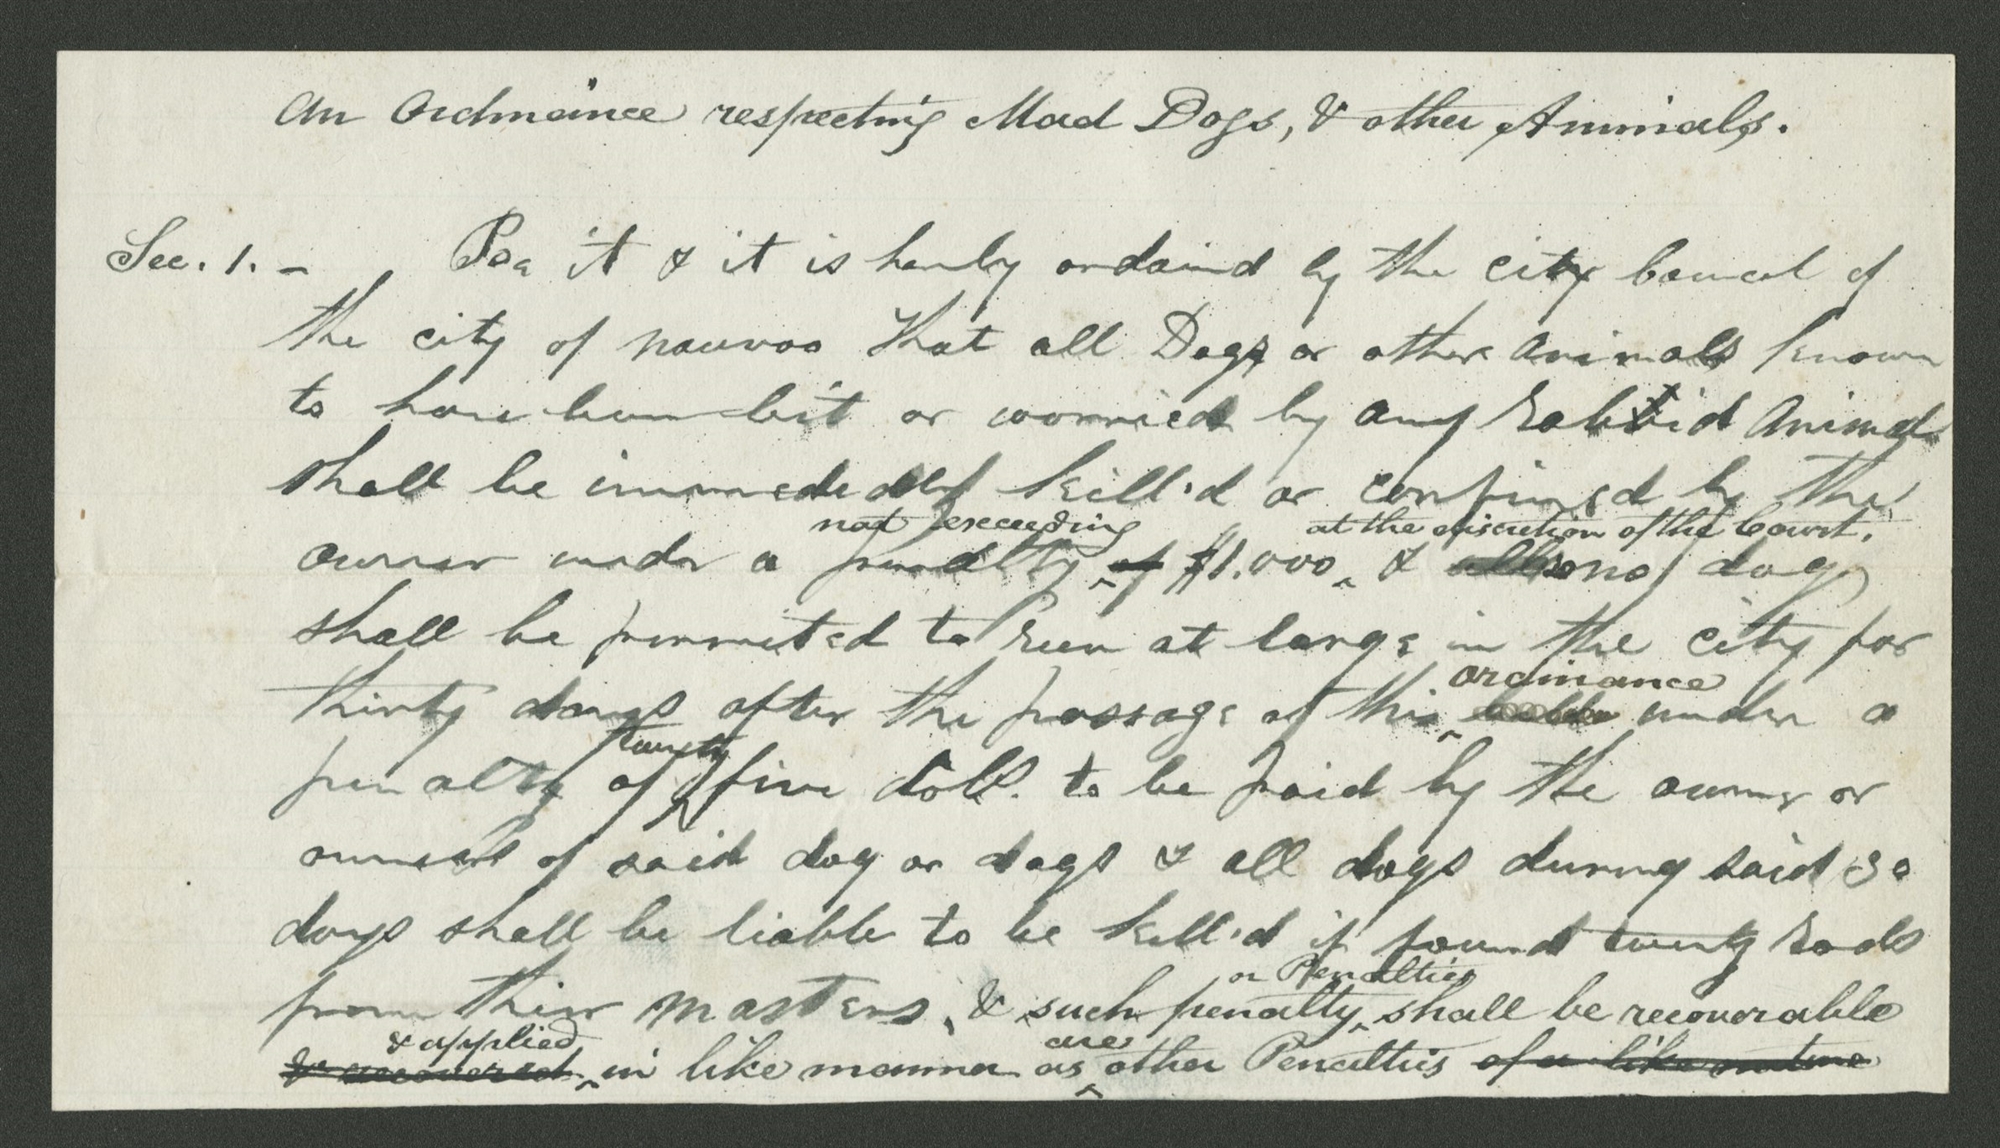 An Ordinance respecting Mad Dogs, & other Animals.
Sec. 1. – Be it & it is herby ordaind by the city Councel of
the city of nauvoo that all Dogs or other animals known
to have been bit or worried by any Rabid Animal
shall be immededatly kill'd or confined by the
not exceeding at the discretion of the Court.
owner under a penalty of $1.000 & no dog
shall be permited to run at large in the city for
ordinance
thirty days after the passage of this under a
twenty
penalty of five doll. to be paid by the owner or
owners of said dog or dogs & all dogs during said 30
days shall be liable to be kill'd if found twenty rods
or Penalties
from thier masters, & such penalty shall be recoverable
& applied are
& recovered in like manner as other Penalties of a like nature